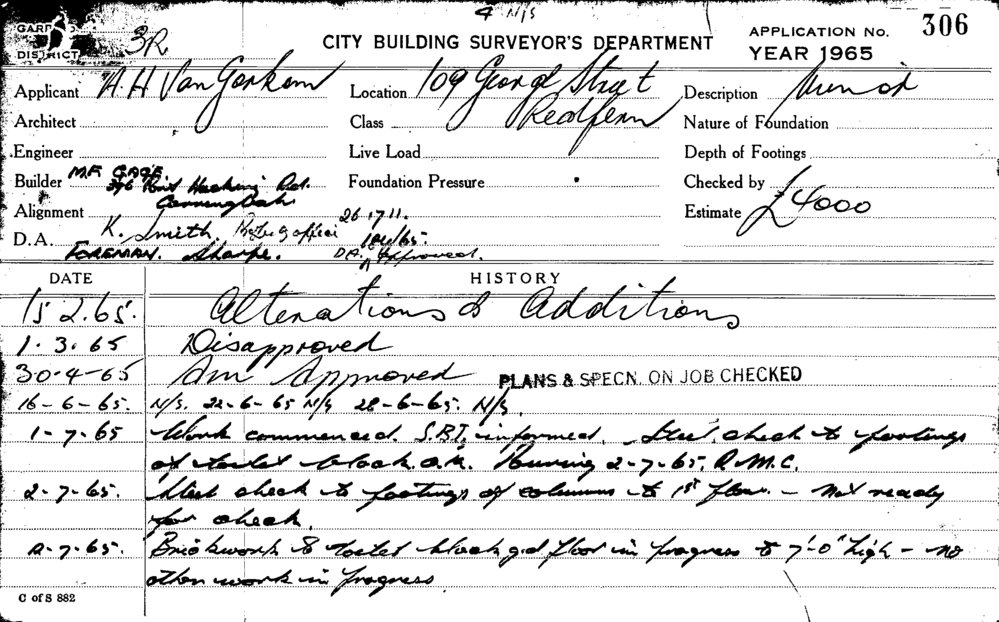 4 N/S
GARP
DISTRICT
3R
CITY BUILDING SURVEYOR'S DEPARTMENT
APPLICATION No. 306
YEAR 1965
Applicant A. H Van Gorkom
Location 109 George Street
Redfern
Description
Architect
Class
Nature of Foundation
Engineer
Live Load
Depth of Footings
Builder M.F. GAGE
376 Port Hacking Rd.
Caringbah
Foundation Pressure
Checked by
Alignment
26 17 11.
Estimate £4000
D.A. K. Smith.
/65.
FOREMAN. Sharpe. DA. Approved.
DATE HISTORY
15 2.65. Alterations & Additions
1.3.65 Disapproved
30-4-65 Am Approved PLANS & SPECN. ON JOB CHECKED
16-6-65. N/S. 22-6-65 N/S 28-6-65. N/S.
1-7.65 Work commenced. S.B.I. informed. Steel check to footings
of toilet block O.K. Pouring 2-7-65. R.M.C.
2-7-65. Steel check to footings of columns to 1st floor. - Not ready
for check.
-7.65. Brickwork to toilet block gd floor in progress to 7'-0" high - no
other work in progress
C of S 882